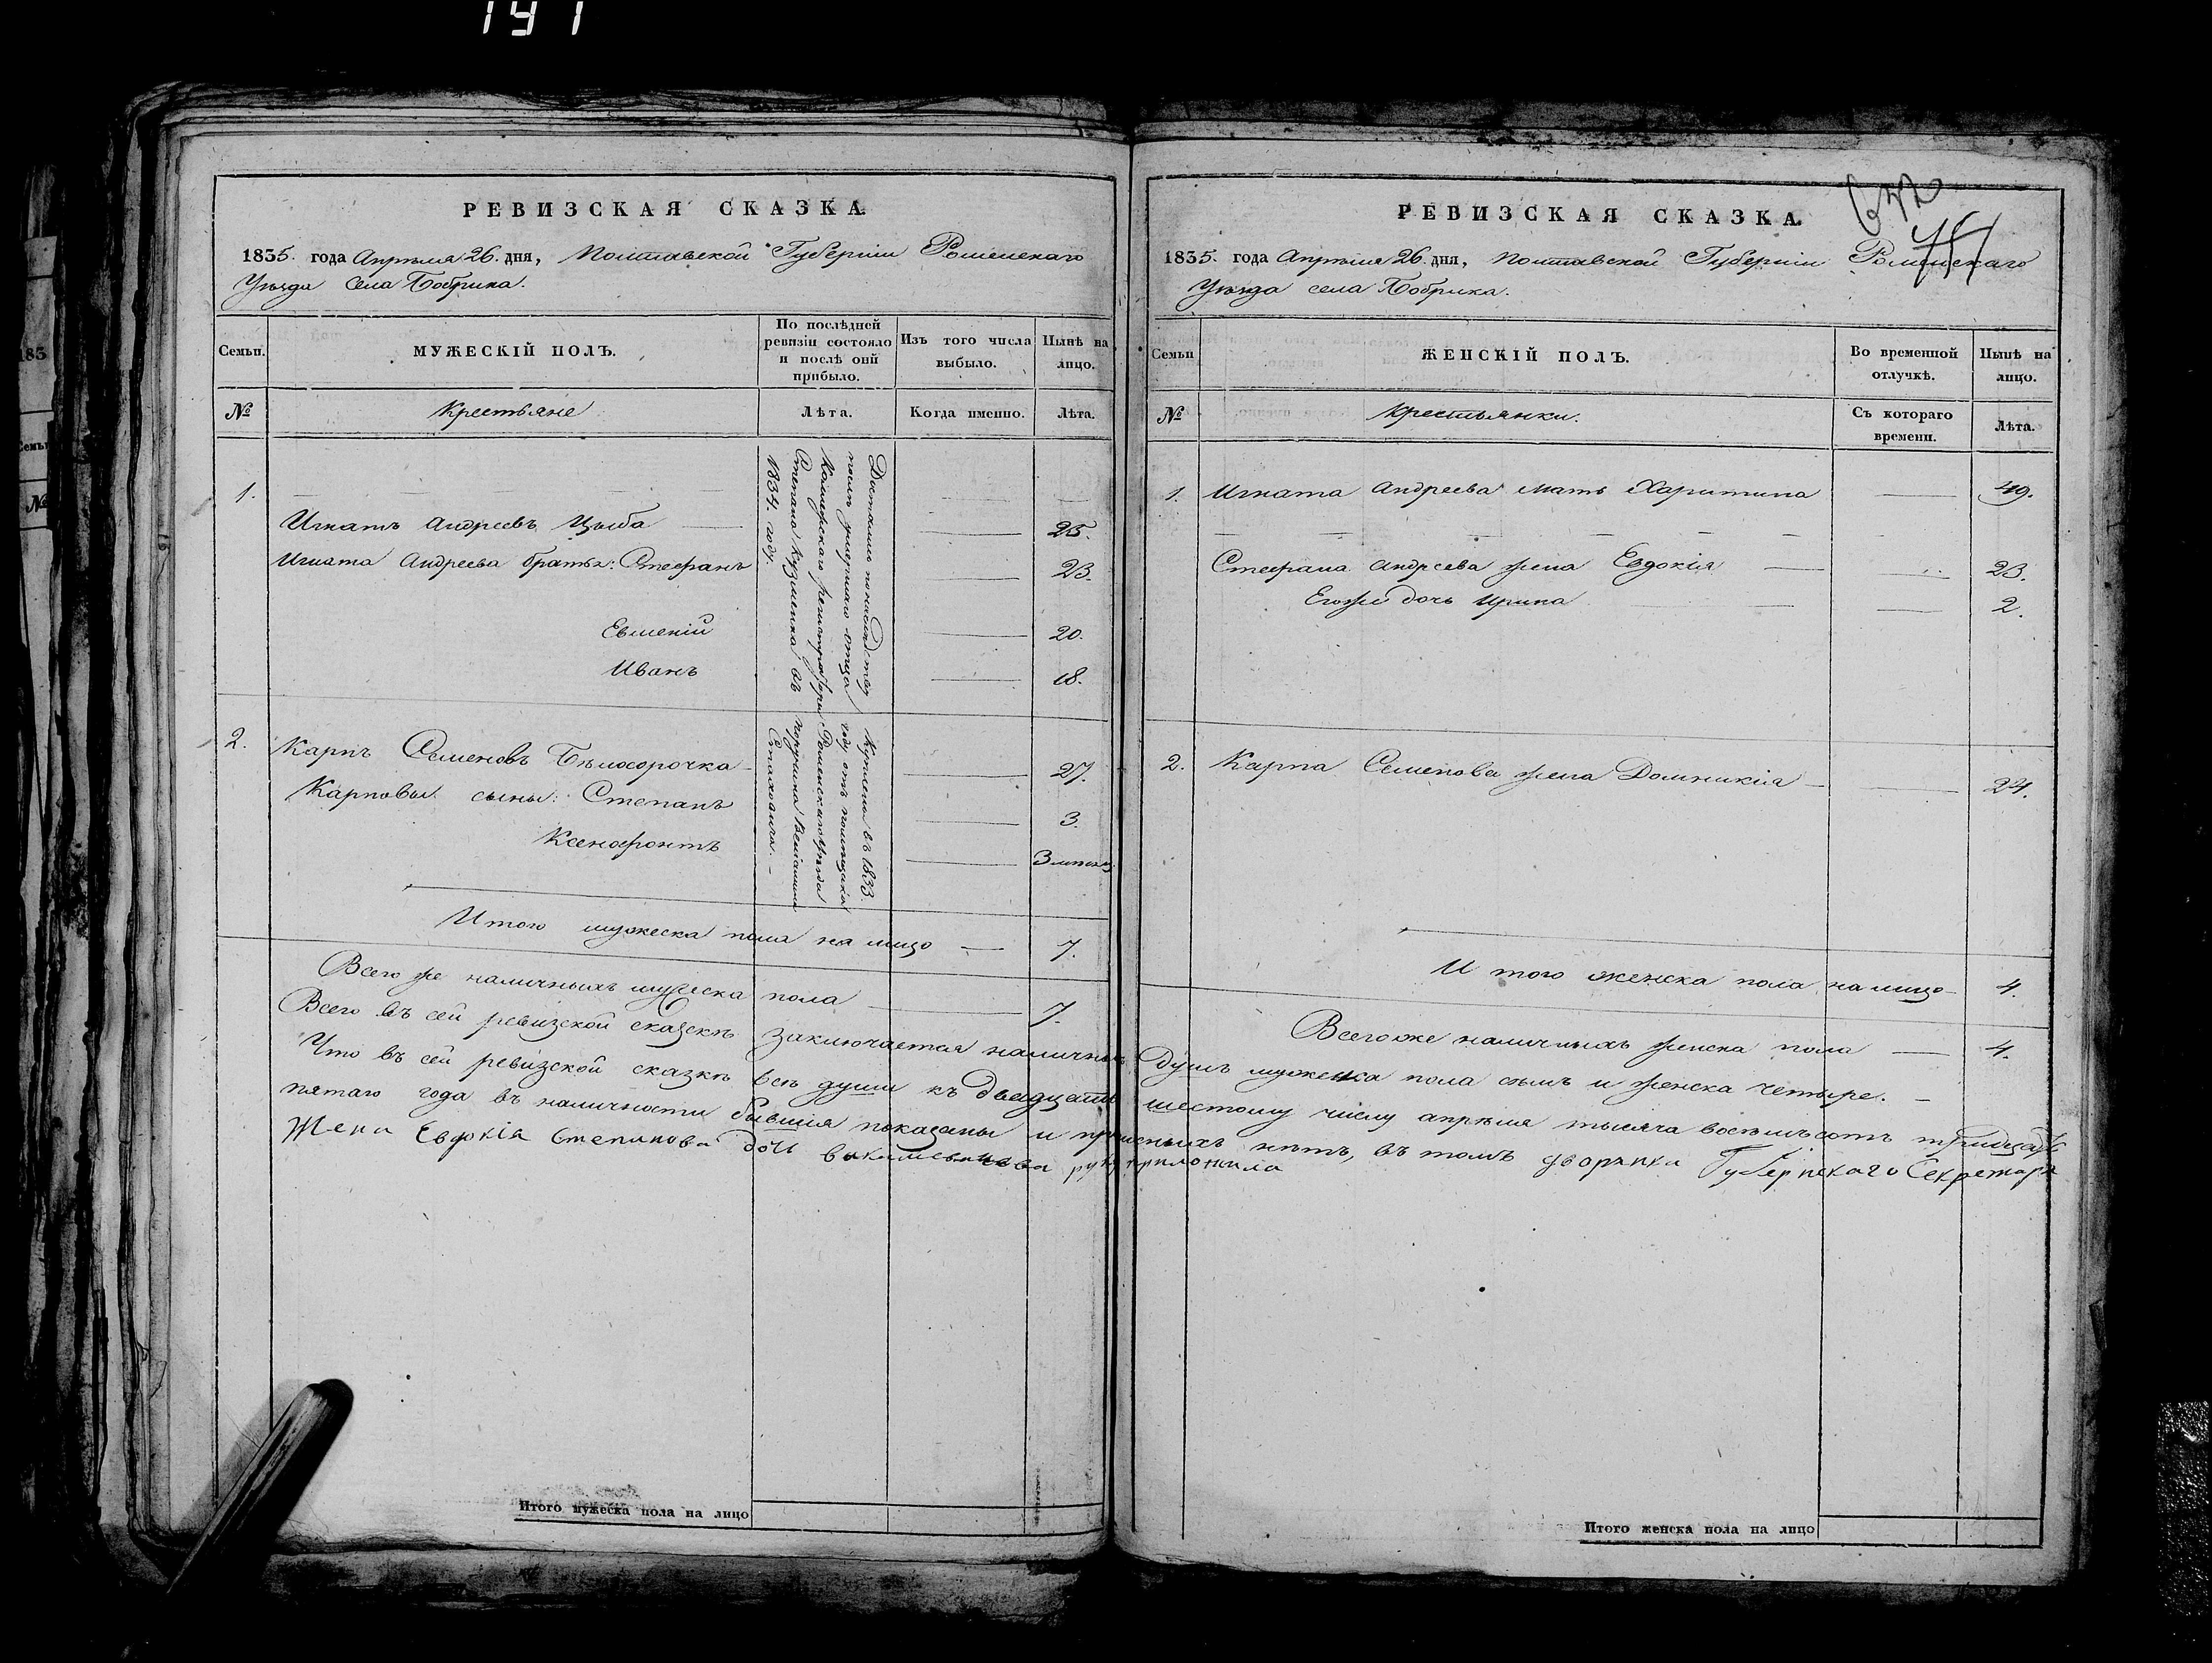 191
РЕВИЗСКАЯ СКАЗКА
1835. года Апреля 26. дня, Полтавской Губернiи Роменскаго
Уѣзда Села Бобрика.
Семьи.
МУЖЕСКIЙ ПОЛЪ.
По послѣдней ревизiи состояло и послѣ онй прибыло.
Изъ того числа выбыло.
Нынѣ на лицо.
№
Крестьяне
Лѣта.
Когда именно.
Лѣта.
1.
Игнатъ Андреевъ Цыба 25.
Игната Андреева братья: Стефанъ 23.
Евменiй 20.
Иванъ 18.
Достались по наследству
послѣ умершаго отца
Коллежскаго регистратора
Степана Кузьменка въ
1834. году.
2. Карпъ Семеновъ Бѣлосорочка 27.
Карповы сыны: Степанъ 3.
Ксенофонтъ 3 месяц.
Куплены въ 1833.
году отъ помещика
Роменскаго уѣзда
поручика
Стаховича.
Итого мужеска пола на лицо 7.
Всего же наличныхъ мужеска пола 7.
РЕВИЗСКАЯ СКАЗКА
1835. года Апреля 26. дня, Полтавской Губернiи Роменскаго
Уѣзда села Бобрика.
Семьи
ЖЕНСКIЙ ПОЛЪ.
Во временной отлучкѣ.
Нынѣ на лицо.
№
Крестьянки.
Съ котораго времени.
Лѣта.
1. Игната Андреева мать Харитина 49.
Стефана Андреева жена Евдокiя 23.
Егоже дочь Ирина 2.
2. Карпа Семенова жена Домникiя 24.
И того женска пола на лицо 4.
Всегоже наличныхъ женска пола 4.
Всего въ сей ревизской сказкѣ заключается наличныхъ душъ мужеска пола семь и женска четыре.
Что въ сей ревизской сказкѣ всѣ души къ двадцать шестому числу апрѣля тысяча восемьсотъ тридцать
пятаго года въ наличности бывшiя показаны и прописныхъ нѣтъ, въ томъ дворянка Губернскаго Секретаря
Жена Евдокiя Степанова дочь руку приложила
Итого мужеска пола на лицо
Итого женска пола на лицо